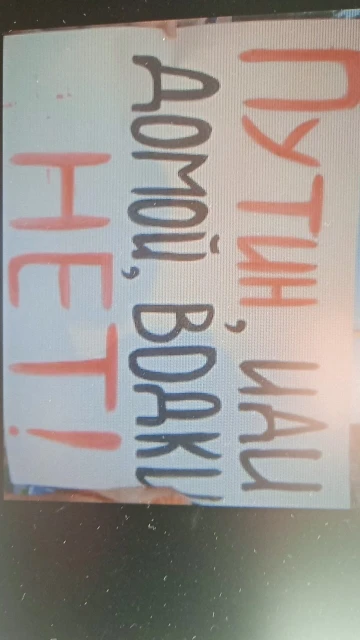 ПУТИН, ИДИ
ДОМОЙ, ВОДКИ
НЕТ!